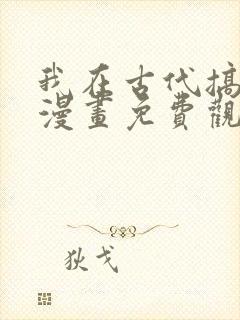 我在古代搞
漫畫免費觀
狄戈